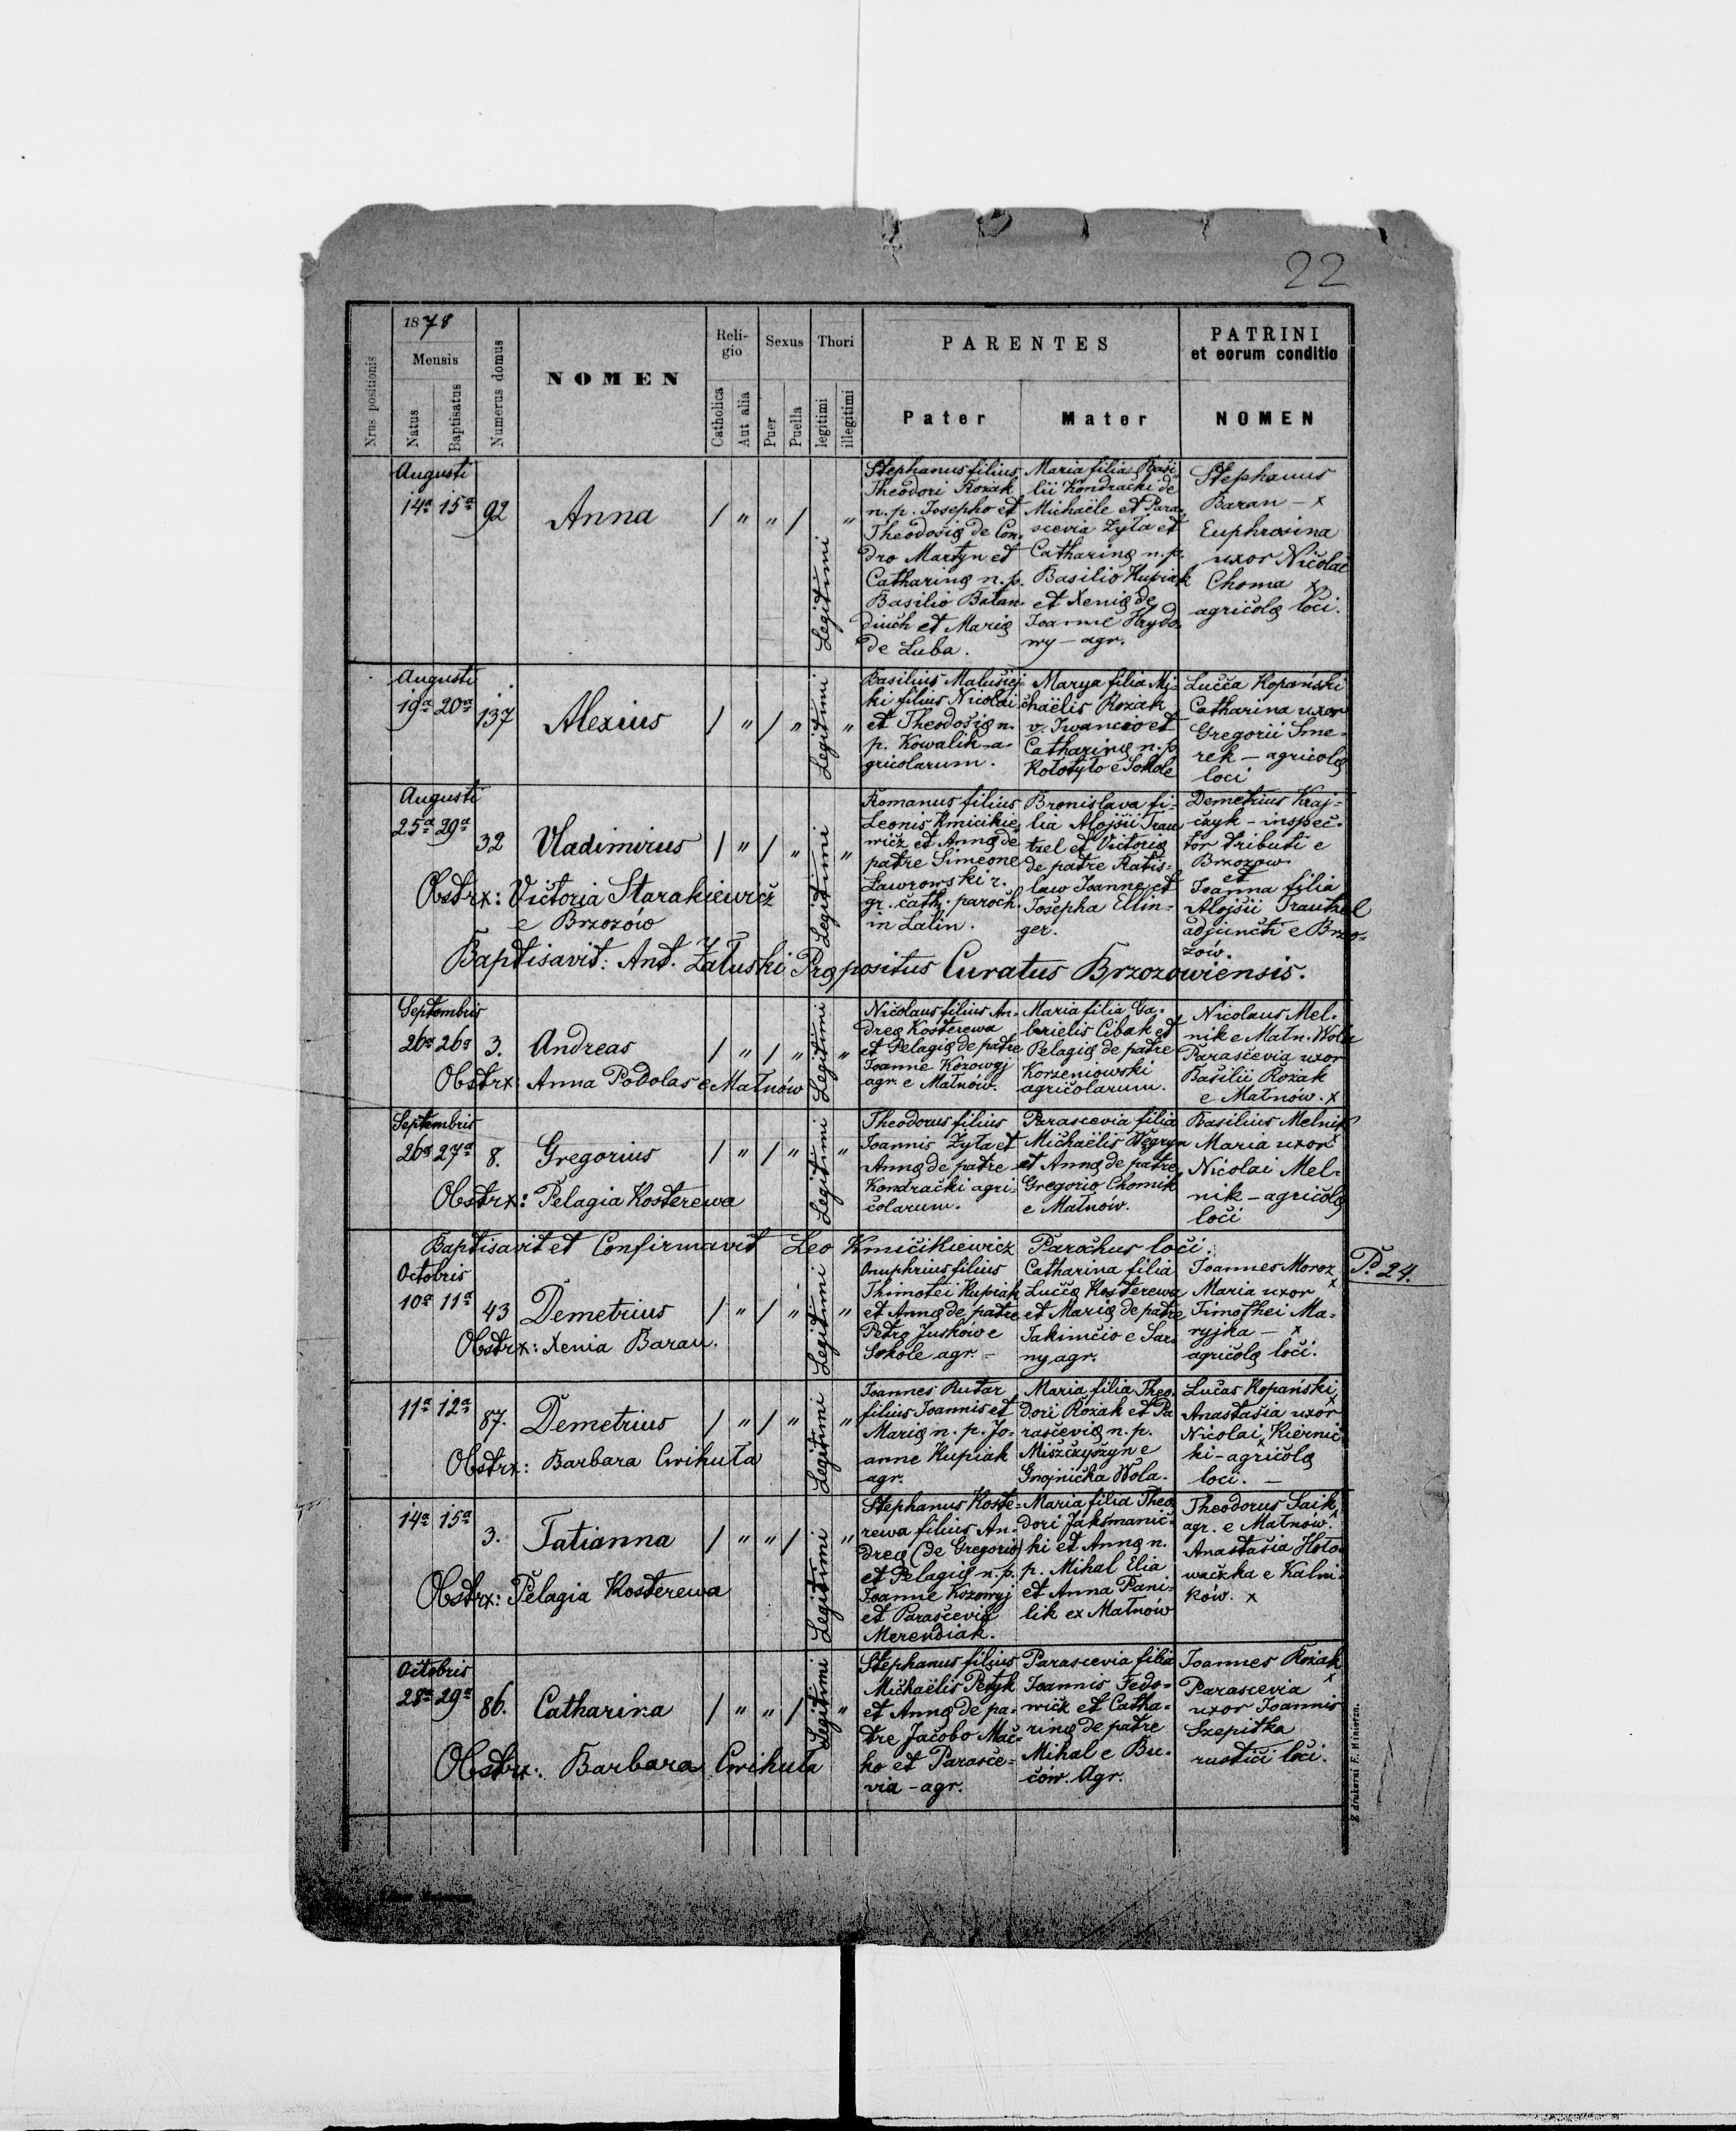 22
1878
Mensis
Nrus positionis
Natus
Baptisatus
Numerus domus
NOMEN
Religio
Catholica
Aut alia
Sexus
Puer
Puella
Thori
legitimi
illegitimi
PARENTES
Pater
Mater
PATRINI
et eorum conditio
NOMEN
Augusti
14a 15a 92 Anna / " " / Legitimi "
Stephanus filius
Theodori Rozak
n. p. Josepho et
Theodosię de Con-
dro Martyn et
Catharinę n. p.
Basilio Bałan-
diuch et Marię
de Luba.
Maria filia Basi-
lii Kondracki de
Michaële et Para-
scevia Zyła et
Catharinę n. p.
Basilio Kupiak
et Xenię de
Joanne Hrydo-
wy - agr.
Stephanus
Baran - x
Euphrosina
uxor Nicolai
Choma x
agricolę loci.
Augusti
19a 20a 137 Alexius / " / " Legitimi "
Basilius Malusiej-
ki filius Nicolai
et Theodosię n.
p. Kowalik - a-
gricolarum.
Marya filia Mi-
chaëlis Rozak
v. Iwancio et
Catharinę n. p.
Kołotyło e Sokole
Lucca Kopański
Catharina uxor
Gregorii Sme-
rek - agricolę
loci
Augusti
25a 29a 32 Vladimirus / " / " Legitimi "
Obstrx: Victoria Starakiewicz
e Brzozów
Romanus filius
Leonis Kmicikie-
wicz et Annę de
patre Simeone
Ławrowski r.
gr. cath. paroch.
in Lalin.
Bronislava fi-
lia Alojsii Trau-
tzel et Victorię
de patre Ratis-
law Joanne et
Josepha Ellin-
ger.
Demetrius Kraj-
czyk - inspec-
tor tributi e
Brzozow
et
Joanna filia
Alojsii Trautzel
adjuncti e Brzo-
zów.
Baptisavit: Ant. Załuski Prępositus Curatus Brzozowiensis.
Septembris
26a 26a 3. Andreas / " / " Legitimi "
Obstrx: Anna Podolas e Małnów
Nicolaus filius An-
dreę Kosterewa
et Pelagię de patre
Joanne Kozowyj
agr. e Małnów.
Maria filia Ga-
brielis Cibak et
Pelagię de patre
Korzeniowski
agricolarum.
Nicolaus Mel-
nik e Małn. Wola
Parascevia uxor
Basilii Rozak
e Małnów. x
Septembris
26a 27a 8. Gregorius / " / " Legitimi "
Obstrx: Pelagia Kosterewa
Theodorus filius
Joannis Zyła et
Annę de patre
Kondracki agri-
colarum.
Parascevia filia
Michaëlis Węgryn
et Annę de patre
Gregorio Chomik
e Małnów.
Basilius Melnik
Maria uxor x
Nicolai Mel-
nik - agricolę
loci
Baptisavit et Confirmavit Leo Kmicikiewicz Parochus loci.
Octobris
10a 11a 43 Demetrius / " / " Legitimi "
Obstrx: Xenia Baran.
Onuphrius filius
Thimotei Kupiak
et Annę de patre
Petro Juśków e
Sokole agr. -
Catharina filia
Luccę Kosterewa
et Marię de patre
Jakimcio e Sar-
ny agr.
Joannes Moroz
Maria uxor x
Timothei Ma-
ryjka - x
agricolę loci.
P. 24.
11a 12a 87. Demetrius / " / " Legitimi "
Obstrx: Barbara Cwihuła
Joannes Rutar
filius Joannis et
Marię n. p. Jo-
anne Kupiak
agr.
Maria filia Theo-
dori Rozak et Pa-
rascevię n. p.
Miszczyszyn e
Gnojnicka Wola.
Lucas Kopański x
Anastasia uxor
Nicolai Kiernic-
ki - agricolę
loci. -
14a 15a 3. Tatianna / " " / Legitimi "
Obstrx: Pelagia Kosterewa
Stephanus Koste-
rewa filius An-
dreę (de Gregorio)
et Pelagię n. p.
Joanne Kozowyj
et Parascevię
Merendiak.
Maria filia Theo-
dori Jaksmanic-
ki et Annę n.
p. Mihal Elia
et Anna Pani-
lik ex Małnów
Theodorus Saik x
agr. e Małnów.
Anastasia Hoło-
waczka e Kalni-
ków. x
Octobris
28a 29a 86. Catharina / " " / Legitimi "
Obstrx: Barbara Cwihuła
Stephanus filius
Michaëlis Petyk
et Annę de pa-
tre Jacobo Mać-
ko et Parasce-
via - agr.
Parascevia filia
Joannis Fedo-
wicz et Catha-
rinę de patre
Mihal e Bu-
ców. Agr.
Joannes Rozak x
Parascevia
uxor Joannis
Szepitka
rustici loci.